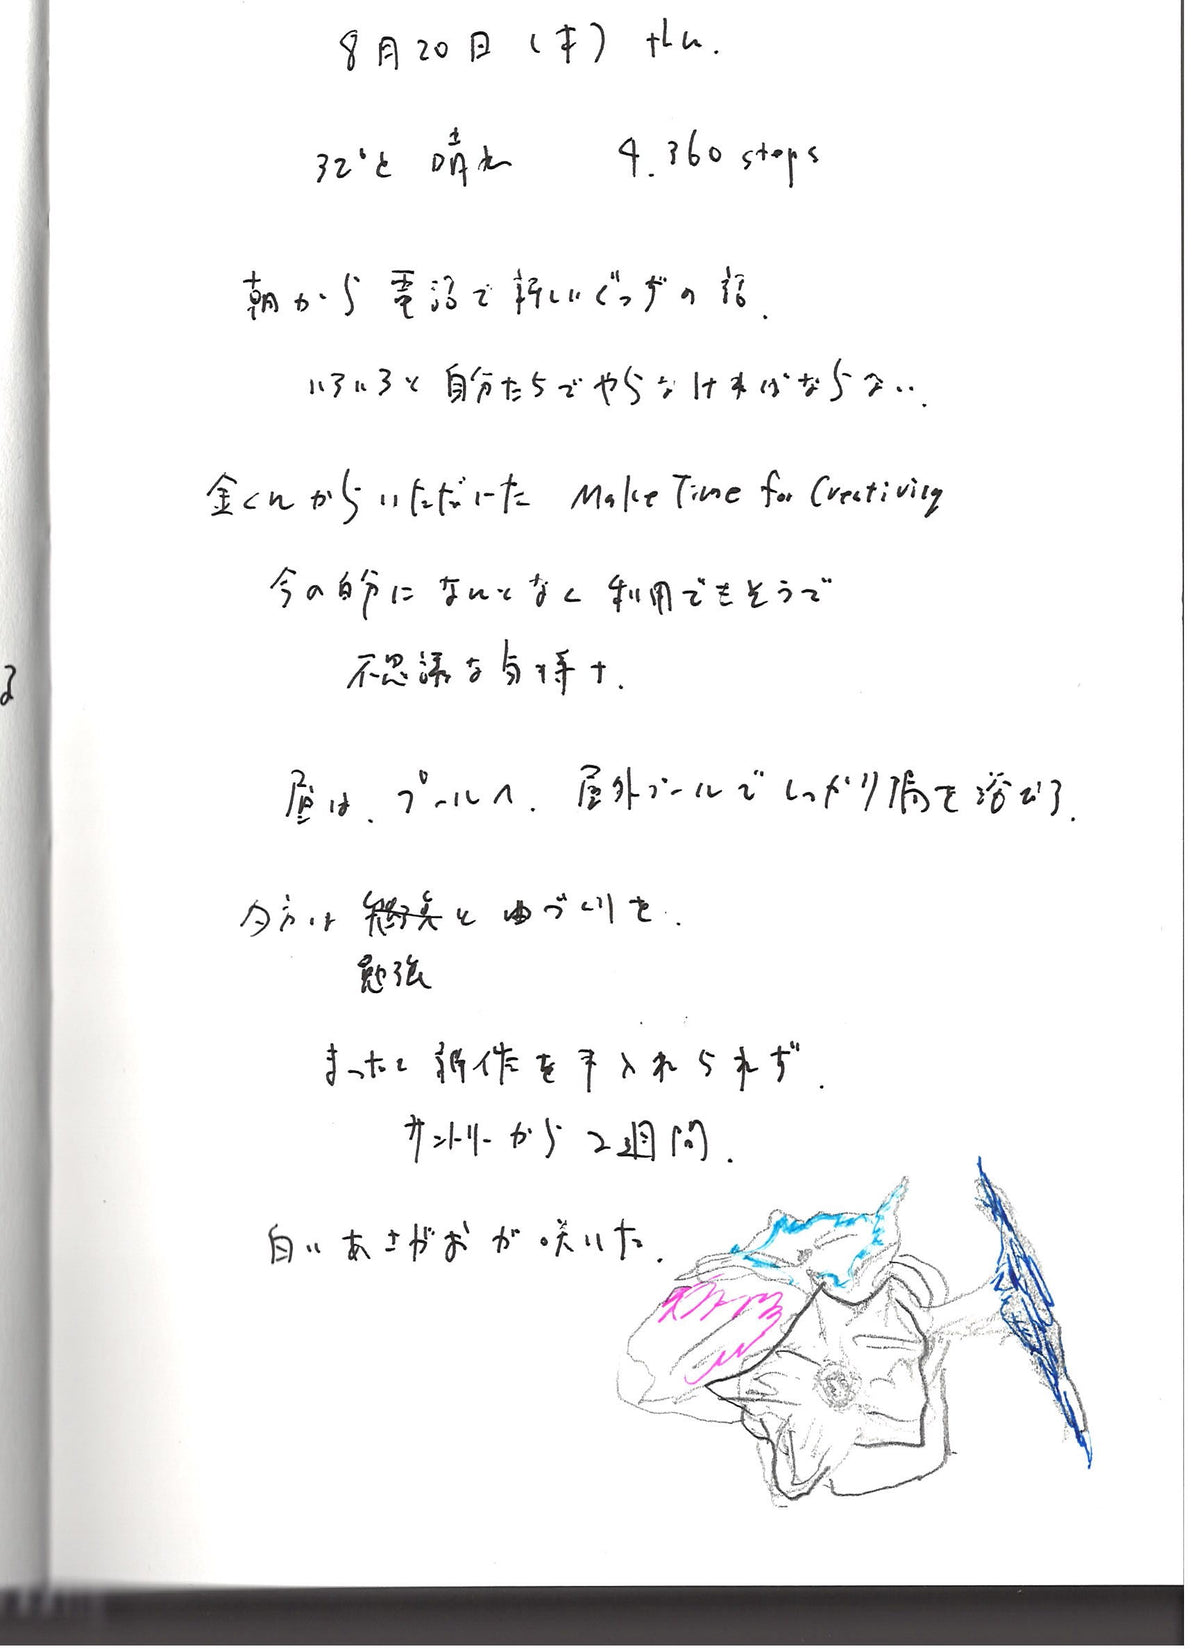 8月20日（木）thu.
32°と 晴れ 4.360 steps
朝から 電話で 新しいぐっずの 話.
いろいろと 自分たちで やらなければならない.
金くんから いただいた Make Time for Creativity
今の自分に なんとなく 利用できそうで
不思議な気持ち.
昼は、プールへ. 屋外プールで しっかり陽を浴びる.
夕方は と 曲づくりを.
勉強
まったく 新作を手入れられず.
サントリーから 2週間.
白い あさがおが 咲いた.
る